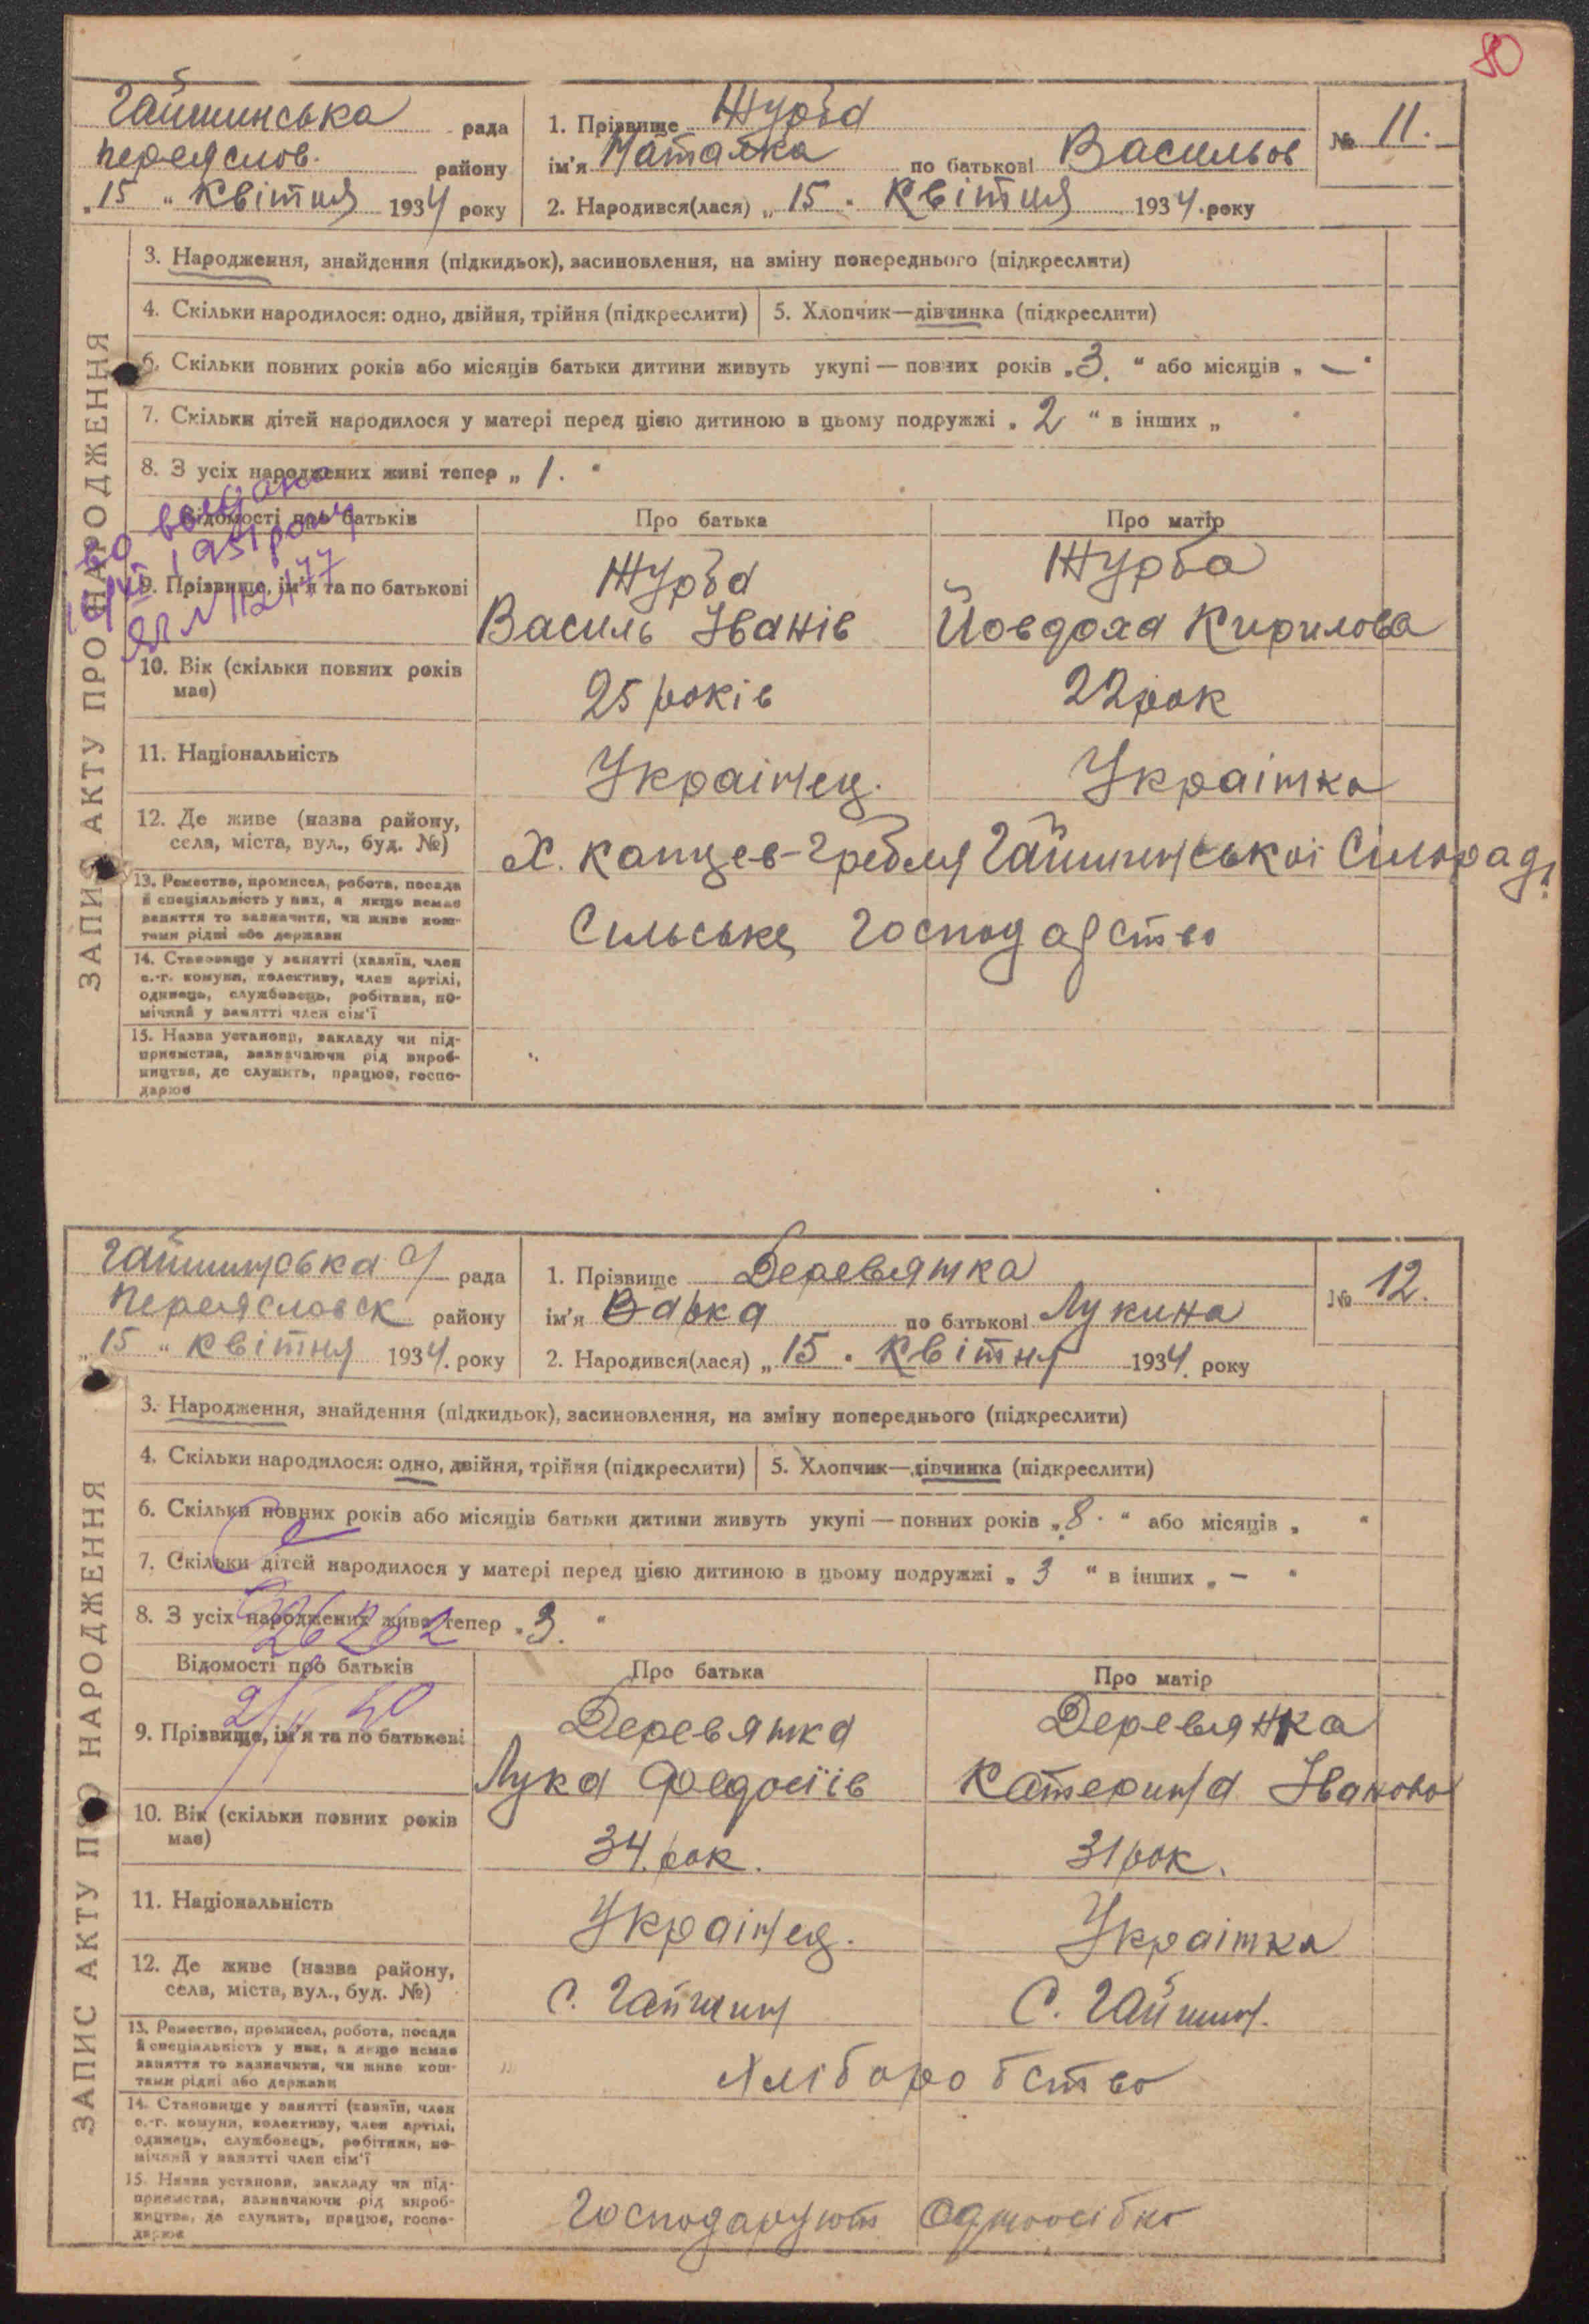 80
Гайшинська рада
Переяслов. району
„15“ Квітня 1934 року
1. Прізвище Журба
ім'я Наталка по батькові Васильов
2. Народився(лася) „15“ Квітня 1934 року
№ 11.
ЗАПИС АКТУ ПРО НАРОДЖЕННЯ
3. Народження, знайдення (підкидьок), засиновлення, на зміну попереднього (підкреслити)
4. Скільки народилося: одно, двійня, трійня (підкреслити)
5. Хлопчик—дівчинка (підкреслити)
6. Скільки повних років або місяців батьки дитини живуть укупі — повних років „3.“ або місяців „—“
7. Скільки дітей народилося у матері перед цією дитиною в цьому подружжі „2“ в інших „ “
8. З усіх народжених живі тепер „1.“
1951 року
ЯР № 112477
Відомості про батьків
Про батька
Про матір
9. Прізвище, ім'я та по батькові
Журба
Василь Іванів
Журба
Йовдоха Кирилова
10. Вік (скільки повних років
має)
25 років
22 рок
11. Національність
Українец.
Українка
12. Де живе (назва району,
села, міста, вул., буд. №)
Х. Гребля Гайшинської Сільради
13. Ремество, промисел, робота, посада
й спеціяльність у них, а якщо немає
заняття то зазначити, чи живе кош-
тами рідні або держави
Сільське господарство
14. Становище у занятті (хазяїн, член
с.-г. комуни, колективу, член артілі,
одинець, службовець, робітник, по-
мічний у занятті член сім'ї
15. Назва установи, закладу чи під-
приємства, зазначаючи рід вироб-
ництва, де служить, працює, госпо-
дарює
Гайшинська с/ рада
Переясловск району
„15“ Квітня 1934. року
1. Прізвище Деревянка
ім'я Варка по батькові Лукина
2. Народився(лася) „15“ Квітня 1934. року
№ 12.
ЗАПИС АКТУ ПРО НАРОДЖЕННЯ
3. Народження, знайдення (підкидьок), засиновлення, на зміну попереднього (підкреслити)
4. Скільки народилося: одно, двійня, трійня (підкреслити)
5. Хлопчик—дівчинка (підкреслити)
6. Скільки повних років або місяців батьки дитини живуть укупі — повних років „8.“ або місяців „ “
7. Скільки дітей народилося у матері перед цією дитиною в цьому подружжі „3“ в інших „—“
8. З усіх народжених живі тепер „3.“
Відомості про батьків
Про батька
Про матір
9. Прізвище, ім'я та по батькові
Деревянка
Лука Федосіїв
Деревянка
Катерина Іванова
10. Вік (скільки повних років
має)
34. рок.
31 рок.
11. Національність
Українец.
Українка
12. Де живе (назва району,
села, міста, вул., буд. №)
с. Гайшин
С. Гайшин.
13. Ремество, промисел, робота, посада
й спеціяльність у них, а якщо немає
заняття то зазначити, чи живе кош-
тами рідні або держави
Хліборобство
14. Становище у занятті (хазяїн, член
с.-г. комуни, колективу, член артілі,
одинець, службовець, робітник, по-
мічний у занятті член сім'ї
15. Назва установи, закладу чи під-
приємства, зазначаючи рід вироб-
ництва, де служить, працює, госпо-
дарює
Господарують одноосібно